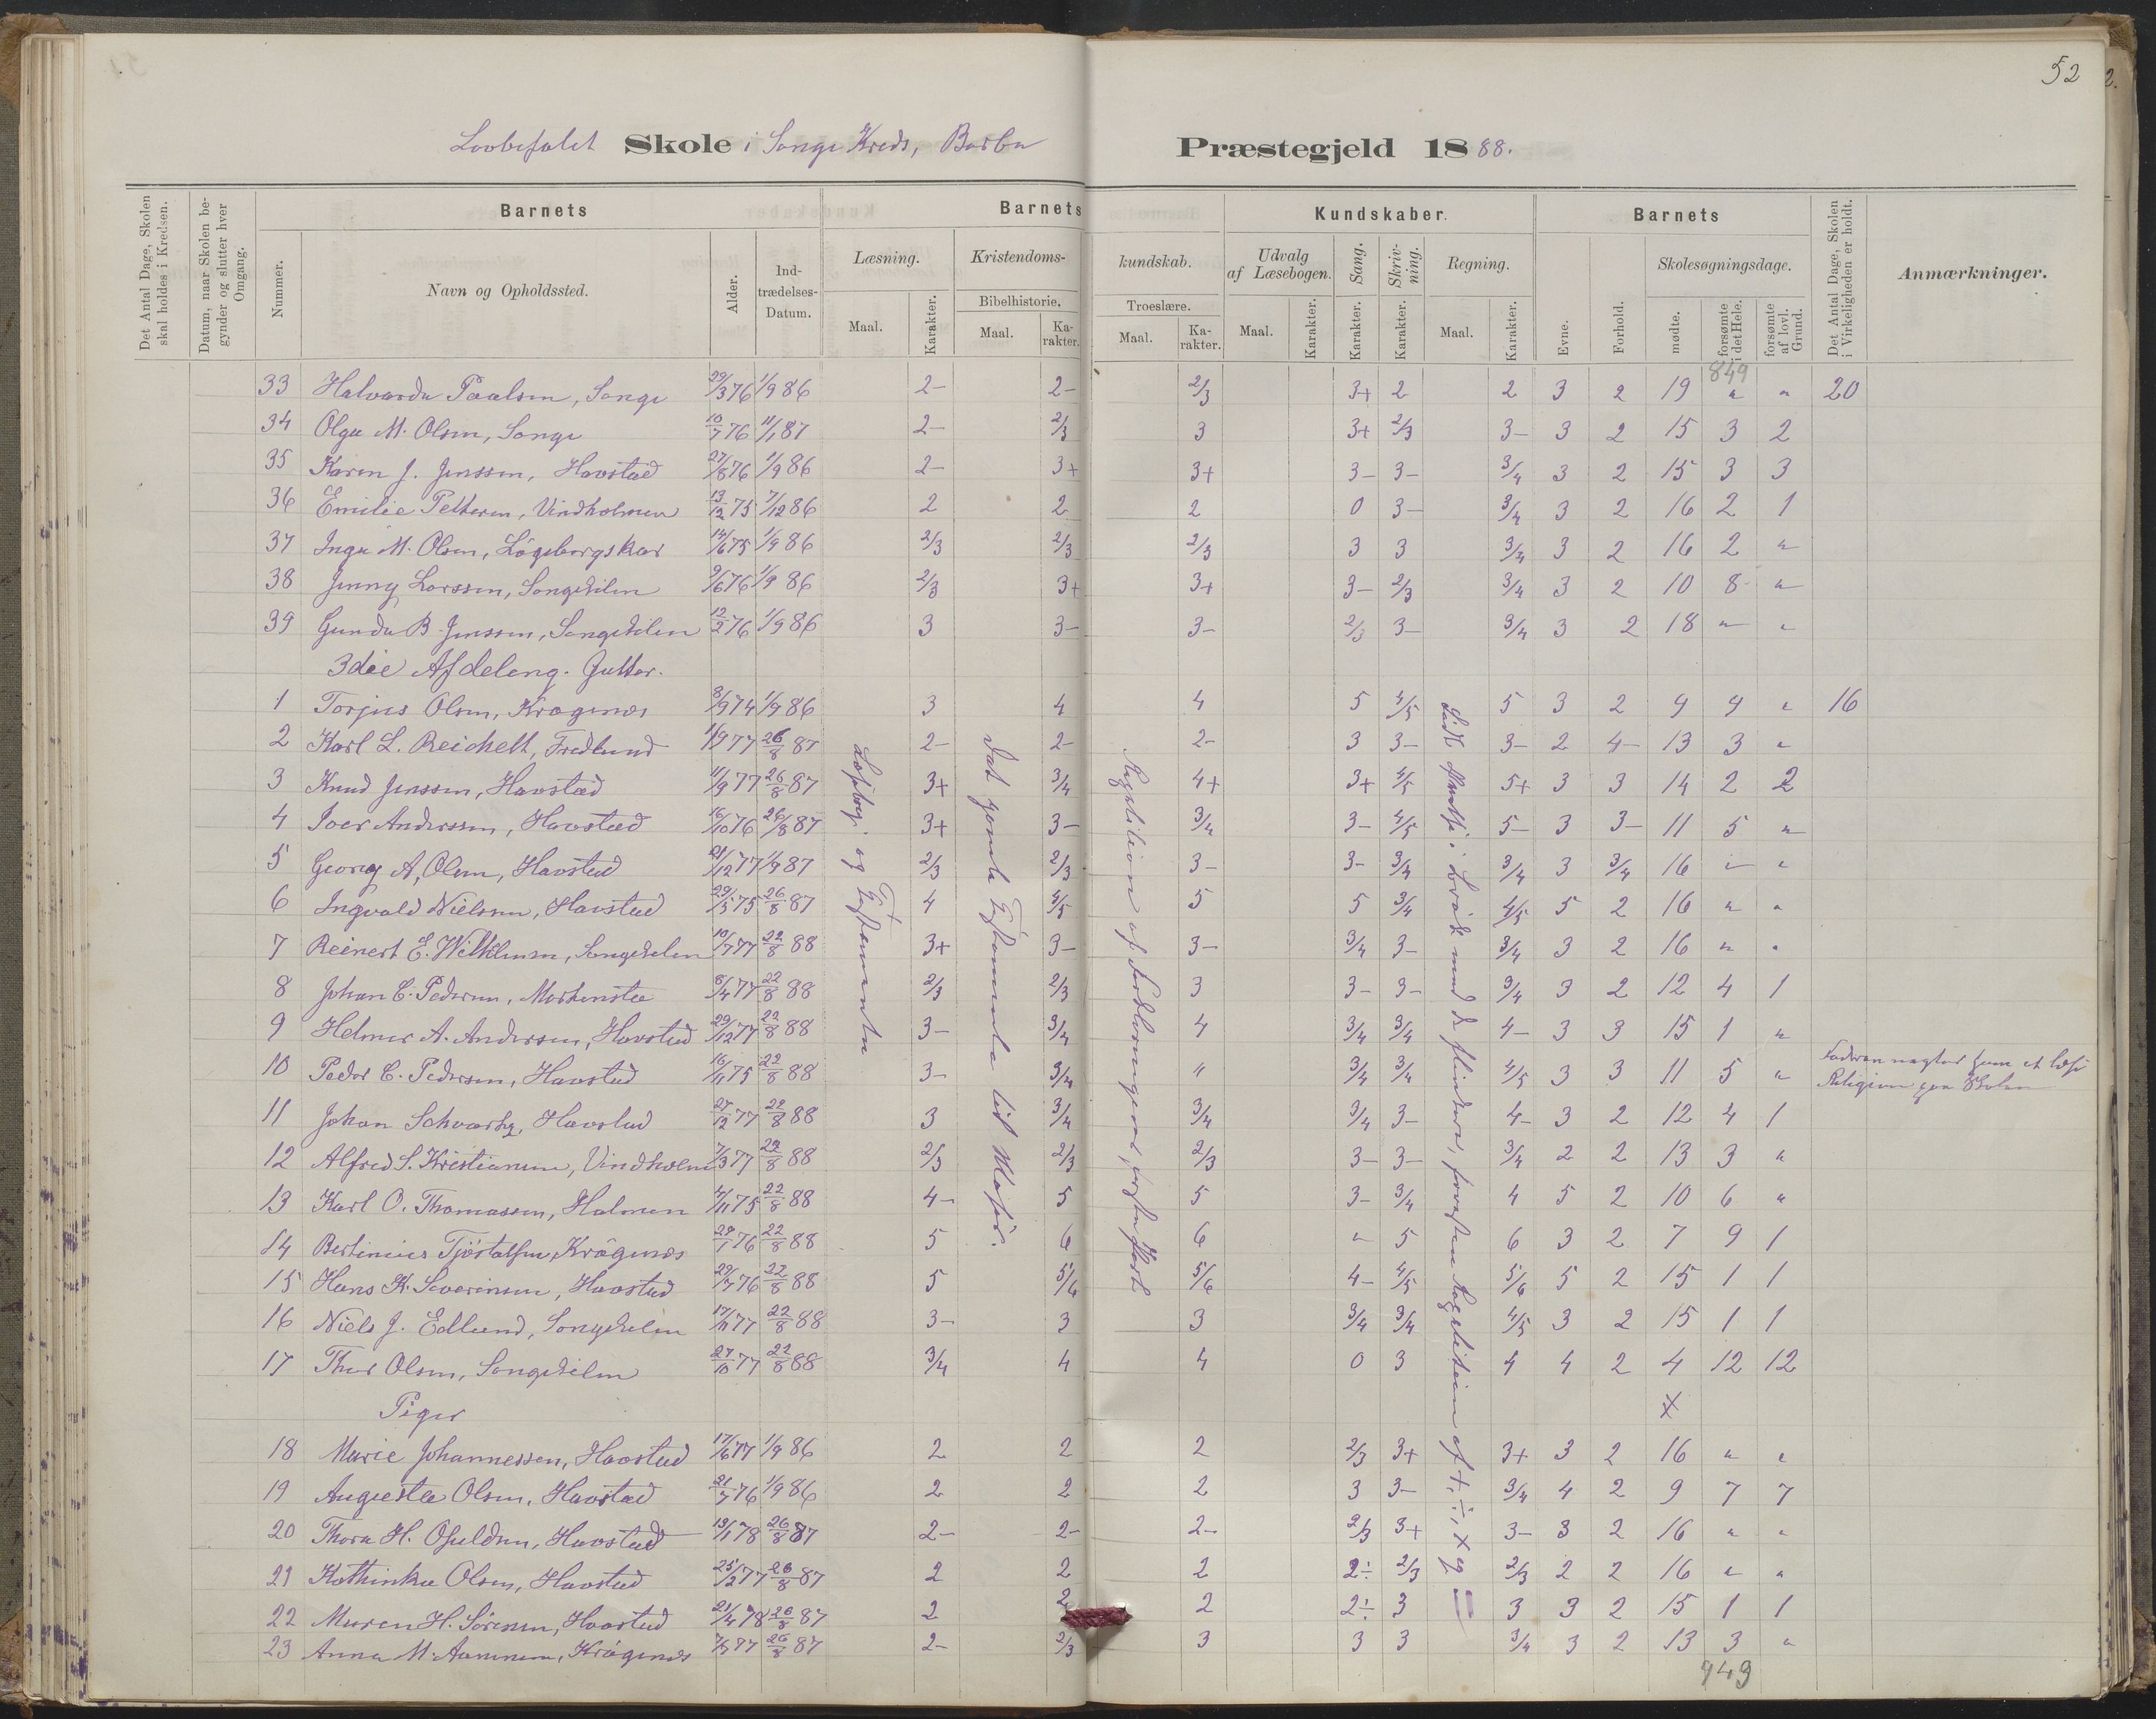 52
Lovbefalet Skole i Songe Kreds, Barbu Præstegjeld 1888.
Det Antal Dage, Skolen skal holdes i Kredsen.
Datum, naar Skolen begynder og slutter hver Omgang.
Barnets
Nummer.
Navn og Opholdssted.
Alder.
Indtrædelses-Datum.
Barnets Kundskaber.
Læsning.
Maal. Karakter.
Kristendomskundskab.
Bibelhistorie.
Maal. Karakter.
Troeslære.
Maal. Karakter.
Udvalg af Læsebogen.
Maal. Karakter.
Sang.
Karakter.
Skrivning.
Karakter.
Regning.
Maal. Karakter.
Barnets
Evne. Forhold.
Skolesøgningsdage.
mødte. forsømte i det Hele. forsømte af lovl. Grund.
Det Antal Dage, Skolen i Virkeligheden er holdt.
Anmærkninger.
849
33 Halvarda Paalsen, Songe 29/3 76 1/9 86 2- 2- 2/3 3+ 2 2 3 2 19 " " 20
34 Olga M. Olsen, Songe 10/7 76 11/1 87 2- 2/3 3 3+ 2/3 3- 3 2 15 3 2
35 Karen J. Jenssen, Havstad 27/8 76 1/9 86 2- 3+ 3+ 3- 3- 3/4 3 2 15 3 3
36 Emilie Pettersen, Vindholmen 13/12 75 7/12 86 2 2 2 0 3- 3/4 3 2 16 2 1
37 Inga M. Olsen, 14/6 75 1/9 86 2/3 2/3 2/3 3 3 3/4 3 2 16 2 "
38 Jenny Larssen, Songekilen 9/6 76 1/9 86 2/3 3+ 3+ 3- 2/3 3/4 3 2 10 8 "
39 Gunda B. Jenssen, Songekilen 12/2 76 1/9 86 3 3- 3- 2/3 3- 3/4 3 2 18 " "
3die Afdeling. Gutter.
1 Torjus Olsen, Kragenes 8/9 74 1/9 86 3 4 4 5 4/5 5 3 2 9 9 " 16
2 Karl L. Reichelt, Fredlund 1/9 77 26/8 87 2- 2- 2- 3 3- 3- 2 4- 13 3 "
3 Knud Jenssen, Havstad 11/9 77 26/8 87 3+ 3/4 4+ 3+ 4/5 5+ 3 3 14 2 2
4 Iver Anderssen, Havstad 16/10 76 26/8 87 3+ 3- 3/4 3- 4/5 5- 3 3- 11 5 "
5 Georg A. Olsen, Havstad 21/12 77 1/9 87 2/3 2/3 3- 3- 3/4 3/4 3 3/4 16 " "
6 Ingvald Nielsen, Havstad 29/5 75 26/8 87 4 4/5 5 5 3/4 4/5 5 2 16 " "
7 Reinert E. Wilhelmsen, Songekilen 10/7 77 22/8 88 3+ 3- 3- 3/4 3- 3/4 3 2 16 " "
8 Johan C. Pedersen, 8/4 77 22/8 88 2/3 2/3 3 3- 3- 3/4 3 2 12 4 1
9 Helmer A. Andersen, Havstad 29/12 77 22/8 88 3- 3/4 4 3/4 3/4 4- 3 3 15 1 "
10 Peder C. Pedersen, Havstad 16/11 75 22/8 88 3- 3/4 " 3/4 3/4 4/5 3 3 11 5 " Faderen negter ham at læse Religion paa Skolen
11 Johan Schvartz, Havstad 27/12 77 22/8 88 3 3/4 3/4 3/4 3- 4- 3 2 12 4 1
12 Alfred S. Kristiansen, Vindholm 7/3 77 22/8 88 2/3 2/3 2/3 3- 3- 3/4 2 2 13 3 "
13 Karl O. Thomassen, Holmen 4/11 75 22/8 88 4- 5 5 3- 3/4 4 5 2 10 6 "
14 Bertinius Tjöstalsen, Krågenes 29/1 76 22/8 88 5 6 6 " 5 6 3 2 7 9 1
15 Hans K. Severinsen, Havstad 29/7 76 22/8 88 5 5/6 5/6 4- 4/5 5/6 5 2 15 1 1
16 Niels J. Edlund, Songekilen 17/11 77 22/8 88 3- 3 3 3/4 3/4 4/5 3 2 15 1 1
17 Thor Olsen, Songekilen 27/10 77 22/8 88 3/4 4 4 0 3 4 4 2 4 12 12
Piger x
18 Marie Johannessen, Havstad 17/6 77 1/9 86 2 2 2 2/3 3+ 3+ 3 2 16 " "
19 Augusta Olsen, Havstad 21/7 76 1/9 86 2 2 2 3 3- 3/4 4 2 9 7 7
20 Thora H. Osuldsen, Havstad 19/1 78 26/8 87 2- 2- 2- 2/3 3+ 3- 3 2 16 " "
21 Kathinka Olsen, Havstad 25/12 77 26/8 87 2 2 2 2÷ 2/3 2/3 2 2 16 " "
22 Maren H. Sörensen, Havstad 21/4 78 26/8 87 2 2 2 2÷ 3 3 3 2 15 1 1
23 Anna M. Aamensen, Krågenes 7/7 77 26/8 87 2- 2/3 3 3 3 3/4 3 2 13 3 "
949
Læsebog og Testamente
Det gamle Testamente til
Repetition af Forklaringens første Part
Lidt i Brök med de flinkere, forresten Repetition af +, ÷, × og =